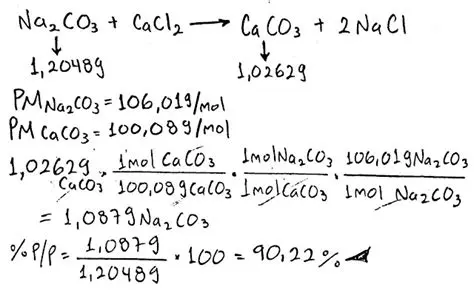 Na₂CO₃ + CaCl₂ → CaCO₃ + 2NaCl
1,2048g 1,0262g
PM Na₂CO₃ = 106,01g/mol
PM CaCO₃ = 100,08g/mol
1,0262g CaCO₃ · 1mol CaCO₃/100,08g CaCO₃ · 1mol Na₂CO₃/1mol CaCO₃ · 106,01g Na₂CO₃/1mol Na₂CO₃
= 1,087g Na₂CO₃
%P/P = 1,087g/1,2048g * 100 = 90,22%